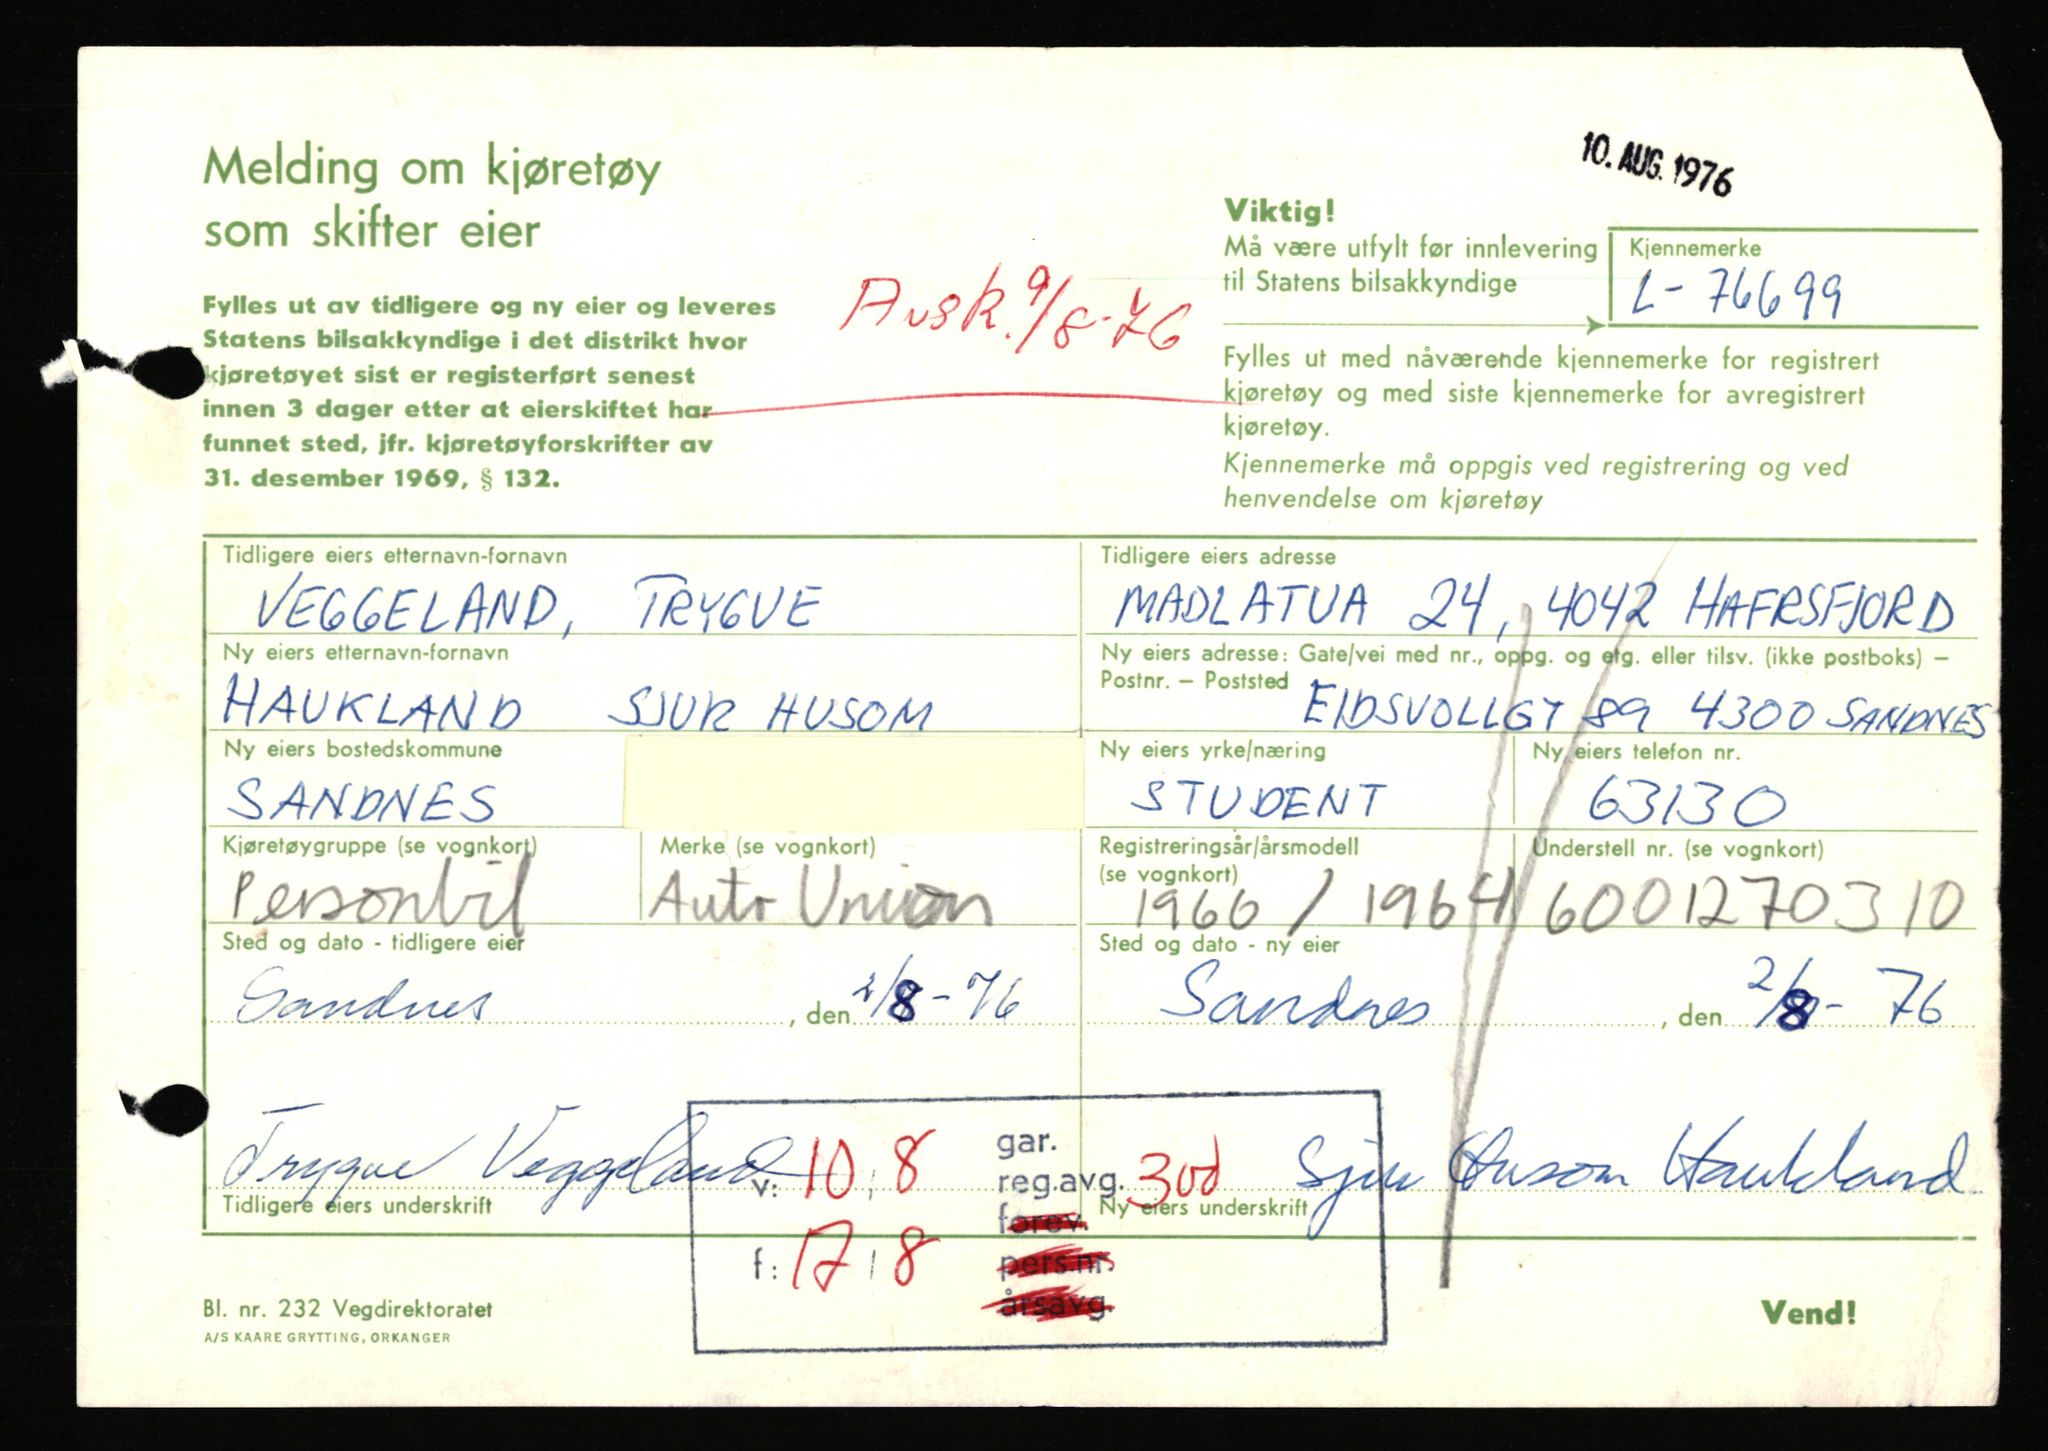 10. AUG. 1976
Melding om kjøretøy
som skifter eier
Fylles ut av tidligere og ny eier og leveres
Statens bilsakkyndige i det distrikt hvor
kjøretøyet sist er registerført senest
innen 3 dager etter at eierskiftet har
funnet sted, jfr. kjøretøyforskrifter av
31. desember 1969, § 132.
Avsk. 9/8-76
Viktig!
Må være utfylt før innlevering
til Statens bilsakkyndige
Kjennemerke
L-76699
Fylles ut med nåværende kjennemerke for registrert
kjøretøy og med siste kjennemerke for avregistrert
kjøretøy.
Kjennemerke må oppgis ved registrering og ved
henvendelse om kjøretøy
Tidligere eiers etternavn-fornavn
VEGGELAND, TRYGVE
Tidligere eiers adresse
MADLATUA 24, 4042 HAFRSFJORD
Ny eiers etternavn-fornavn
HAUKLAND SJUR HUSOM
Ny eiers adresse: Gate/vei med nr., oppg. og etg. eller tilsv. (ikke postboks) –
Postnr. – Poststed EIDSVOLLGT 89 4300 SANDNES
Ny eiers bostedskommune
SANDNES
Ny eiers yrke/næring
STUDENT
Ny eiers telefon nr.
63130
Kjøretøygruppe (se vognkort)
Personbil
Merke (se vognkort)
Auto Union
Registreringsår/årsmodell
(se vognkort)
1966 / 1964
Understell nr. (se vognkort)
6001270310
Sted og dato - tidligere eier
Sandnes, den 2/8-76
Sted og dato - ny eier
Sandnes, den 2/8-76
Trygve Veggeland
Tidligere eiers underskrift
Sjur Husom Haukland
Ny eiers underskrift
v: 10 8
f: 17 8
gar.
reg.avg. 300
forev.
pers.nr.
årsavg.
Bl. nr. 232 Vegdirektoratet
A/S KAARE GRYTTING, ORKANGER
Vend!